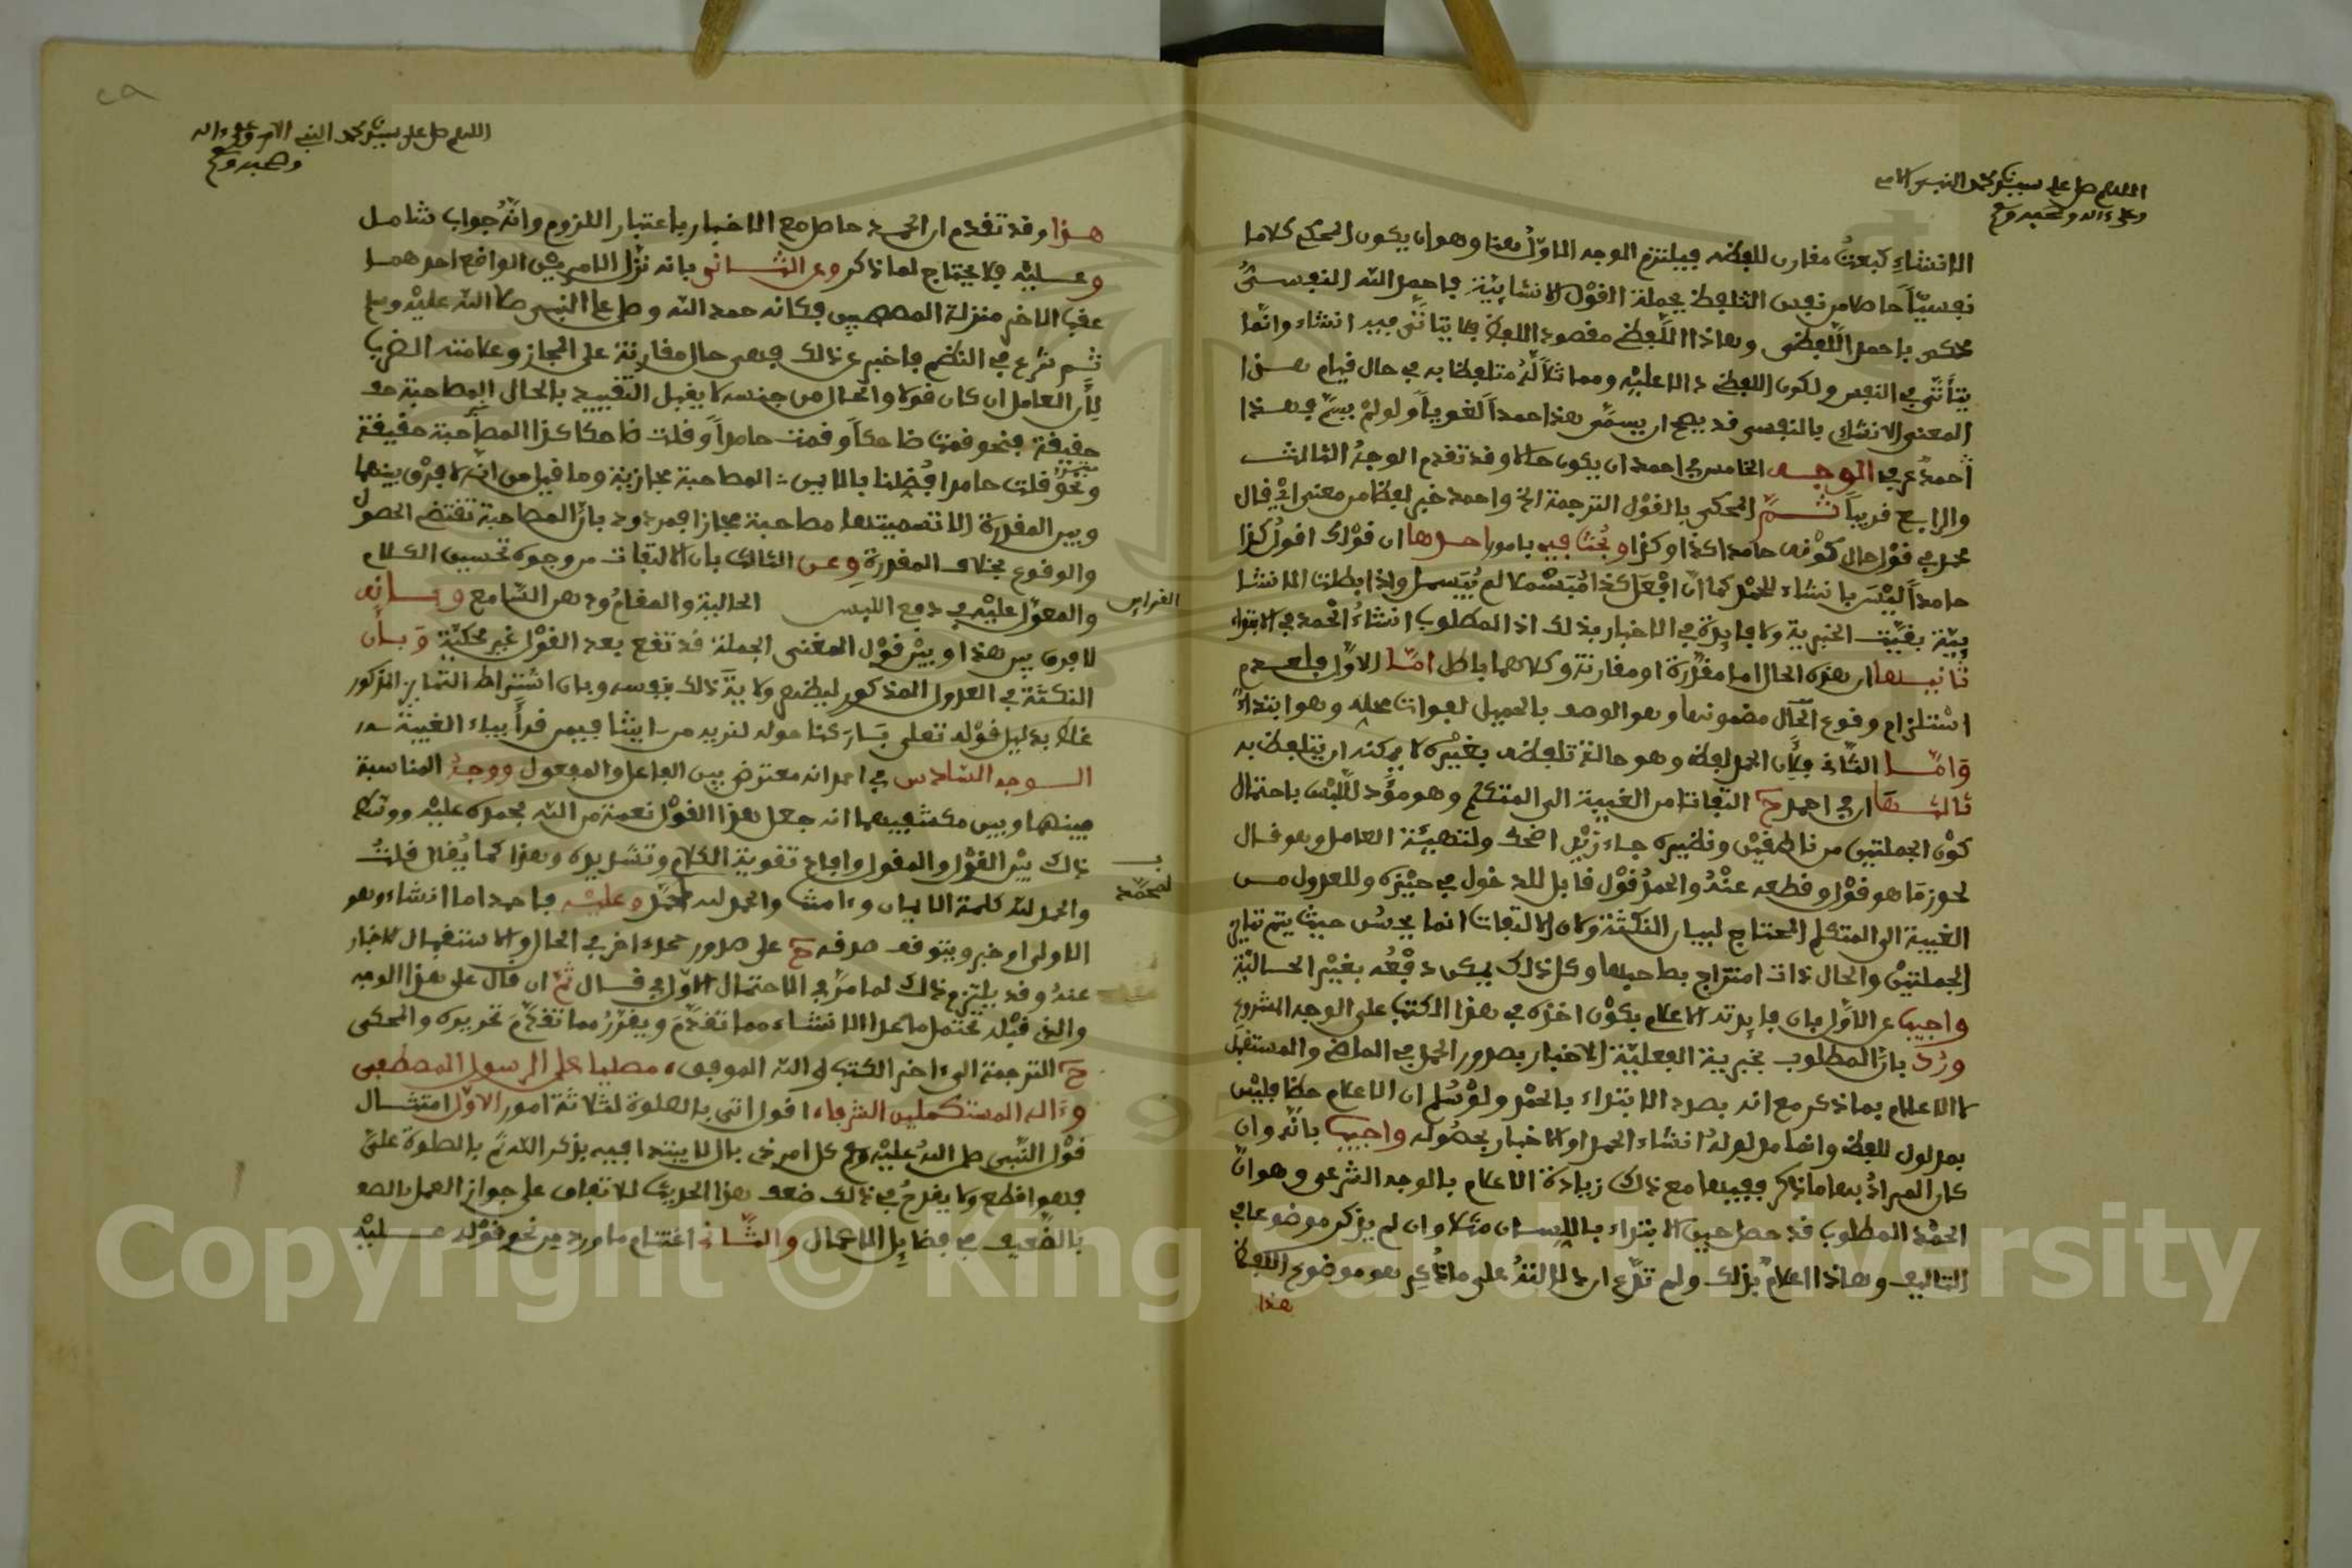 اللهم صل على سيدنا محمد النبي الامي
وعلى ءاله وصحبه وسلم
الانشاءِ كبعتُ مقارن للفظه فيلتزم الوجه الاوّلُ هنا وهو ان يكون المحكى كلاما
نفسيّاً حاصلا من نفس التلفظ بجملة القوْل الانشائيّة فاحمد اللّه النفسىُّ
محكى باحمد اللّفظى وهاذا اللّفظى مقصود اللفظ فلا يتأتّى فيه انشاء وانّما
يتأتّى في النفس ولكون اللفظى دالا عليْه ومماثلاً لهُ متلفظا به في حال قيام هذا
المعنى الانشائى بالنفس قد يصح ان يسمّى هذا حمداً لغوياً ولو لمْ يسمَّ فهذا
احمدُ عرفي الوجه الخامس في احمد ان يكون حالا وقد تقدم الوجهُ الثالث
والرابع قريباً ثـمَّ المحكى بالقوْل الترجمة الخ واحمد خبر لفظا من معنى اىْ قال
محمد في قوْل حال كوْنه حامدا كذا وكذا وبُحث فيه بامور احدها ان قوْلك اقولُ كذا
حامداً ليْسَ بانشاء للحمْد كما انّ افْعَل كذا مُبَسْملا لم يُبَسمل واذا بطلت الانشا
ييّة بقيَت الخبرية ولا فايدة في الاخبار بذلك اذ المطلوب انشاءُ الْحمد في الابتداء
ثانيـها ان هذه الحال اما مقدّرة او مقارنة وكلاهما باطل امّـا الاوّل فلعدم
اسْتلزام وقوع الحال مضمونها وهو الوصف بالجميل لفوات محله وهو ابتداءً
وَامّـا الثّانى فلأن الحمد لفظ وهو حالة تلفظه بغيْره لا يمكنه ان يتلفظ به
ثالثـهَا ان في احمد ح التفاتا من الغيبة الى المتكلم وهو مؤَد للّبْس باحتمال
كوْن الجملتين من ناطقيْن ونظيره جاء زيْد اضحك ولتهيئة العامل وهو قـال
لحوز مَا هو قوْل وقطعه عنْهُ والحمدُ قوْل قابل للدخول في حيّزه وللعدول مـن
الغيبة الى المتكلم المحتاج لبيان النكتة ولان الالتفات انما يحسُن حيث يتم تنافى
الجملتيْن والحال ذات امتزاج بصاحبها وكل ذلك يمكن دفْعُه بغيْر الحـاليّة
واجيب عن الاوّل بان فايدته الاعلام بكوْن اخذه في هذا الكتب على الوجه المشروع
ورُدّ بانّ المطلوب بخبرية الفعليّة الاخبار بصدور الحمد في الماضى والمستقبل
لا الاعلام بما ذكر مع انه بصدد الابتداء بالحمْد ولوْ سُلم ان الاعلام حظا فليْس
بمدلول للفظ وانما مدلولهُ انشاء الحمد او الاخبار بحصُوله واجيب بانّه وان
كان المرادُ بها ما ذكر ففيها مع ذلك زيادة الاعلام بالوجه الشرعى وهو انّ
الحمْد المطلوب قد حصل حين الابتداء باللسان مثلا وان لم يذكر موضوعا في
التاليف وهاذا اعلامٌ بذلك ولم تدّع ان دلالتهُ على ما ذُكِر هو موضوع اللفظ
هذا
٢٩
اللهم صل على سيدنا محمد النبي الامي وعلى ءاله
وصحبه وسلم
هـذا وقد تقدم ان الحمـد حاصل مع الاخبار باعتبار اللزوم وانّهُ جواب شامـل
وعـليْه فلا يحتاج لما ذكر وعن الثـانى بانه نزّل الامريْن الواقع احدهمـا
عقب الاخر منزلة المصاحبين فكانه حمد اللّه وصلى على النبي صلى اللّه عليْه وسلم
ثـم شرع في النظم فاخبر عن ذالك فهى حال مقارنة على المجاز وعلامته الضرب
لأن العامل ان كان قولا والحال من جنسه لا يقبل التقييد بالحال المصاحبة حـ
حقيقة فنحو قمت ضاحكاً وقمت حامداً وقلت ضاحكا كذا المصاحبة حقيقة
ونحوُ قلت حامدا افضلنا بالاس : المصاحبة مجازية وما قيل من انّه لا فرْق بينها
وبين المقدرة الا تسميتها مصاحبة مجازا فمردود بانّ المصاحبة تقتضى الحصول
والوقوع بخلاف المقدرةِ وعـن الثالث بان الالتفات من وجوه تحسين الكـلام
والمعوّل عليْه في دفع اللبـس الحالية والمقامُ ودهر السّامع وبـانه
القراين
لا فرق بين هذا وبيْن قوْل المغنى الجملة قد تقع بعد القوْل غير محكيّة وَبـأن
النكتة في العدول المذكور ليظهر ولا يتأ ذلك بنفسه وبان اشتراط التماين المذكور
غلط بدليل قوْله تعلى بَارَكنا حوله لنريه من ءايتنا فيمن قرأ بياء الغيبة
الـوجه السّادس في احمد انه معترض بين الفاعل والمفعول ووجهُ المناسبة
بينها وبين مكتنفيهما انه جعل هذا القوْل نعمة من اللّه بحمده عليْه ووسّط
ذلك بيْن القوْل والمقول وافاد تقوية الكلام وتسديده وهذا كما يُقال قلتُ
والحمد للّه كلمة الايمان وءامنت والحمد لله بمحمّد وعليْـه فاحمد اما انشاء وهو
بـ
لمحمَّد
الاولى او خبر ويتوقف صدقه ح على صدور حمد ءاخر في الحال والاستقبال للاخبار
عنهُ وقد يلتزم ذلك لما مرّ في الاحتمال الاوّل في قـال ثمّ ان قال على هذا الوجه
والذى قبْله تحتمل ما عدا الانشاء مما تقدّم ويقرّرُ مما تقدّمَ تحريره والمحكى
ح الترجمة الى ءاخر الكتب واللّه الموفق، مصليا على الرسول المصطفى
وءَاله المستكملين الشرفاء اقول اتى بالصلوة لثلاثة امور الاوّل امتثـال
قوْل النّبي صلى اللهُ عليْه وسلم كل امر ذى بال لا يبتدا فيه بذكر اللّه ثمّ بالصلوة علىَّ
فهو اقطع ولا يقدحُ في ذالك ضعف هذا الحديث للاتفاق على جواز العمل بالضعـ
بالضّعيف في فضايل الاعمال والثّـانى اغتنام ما ورد من نحو قوْله عـليْه
Copyright © King Saud University